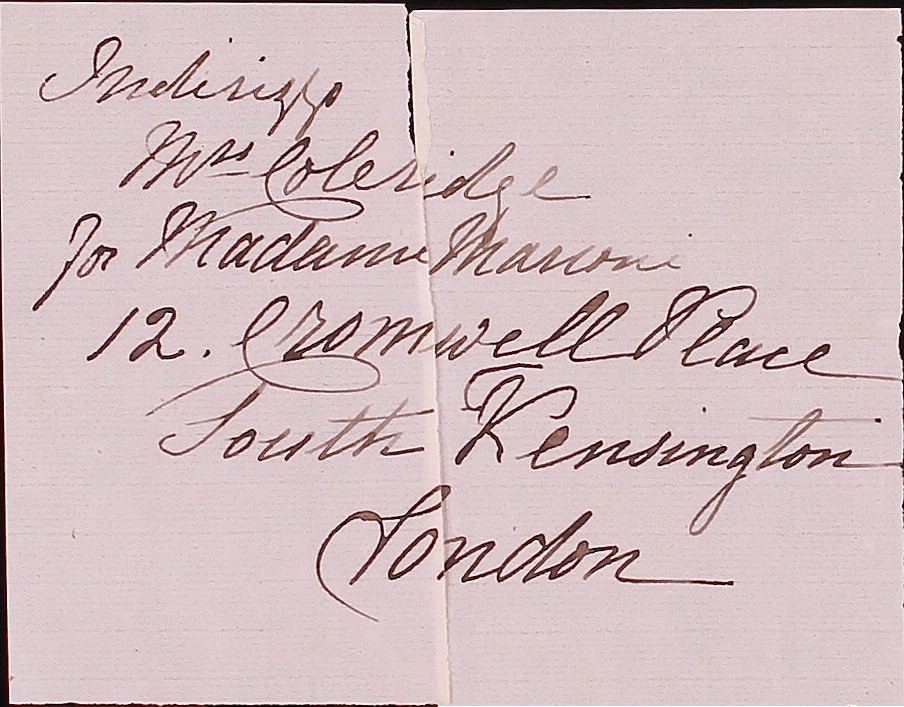 Indirizzo
Mrs Coleridge
for Madame Marconi
12. Cromwell Place
South Kensington
London